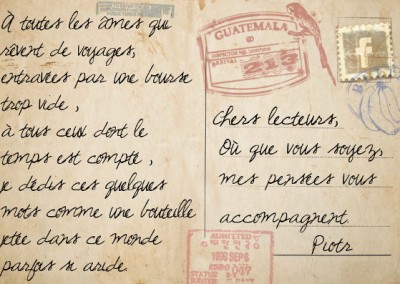 À toutes les âmes qui
rêvent de voyages,
entravées par une bourse
trop vide,
à tous ceux dont le
temps est compté,
je dédis ces quelques
mots comme une bouteille
jetée dans ce monde
parfois si aride.
GUATEMALA
213
f
Chers lecteurs,
Où que vous soyez,
mes pensées vous
accompagnent.
Piotr
ADMITTED
1998 SEP 6
047
STATUS